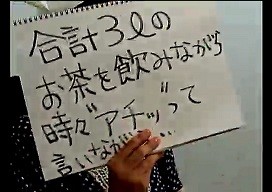 合計3ℓの
お茶を飲みながら
時々"アチッ"って
言いながら...